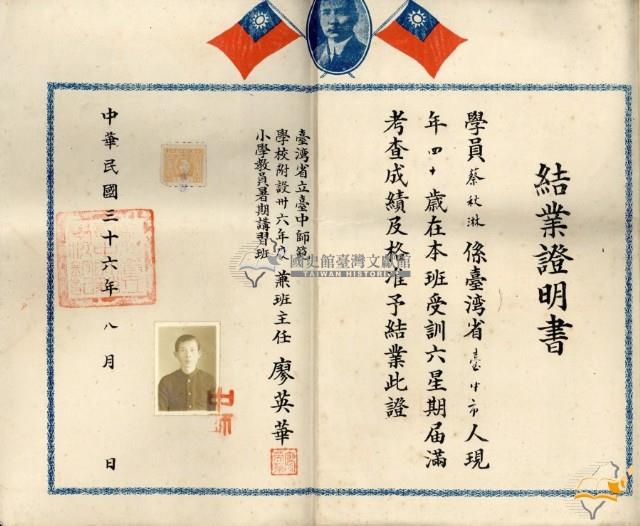 結業證明書
學員蔡秋淋係臺灣省臺中市人現
年四十歲在本班受訓六星期屆滿
考查成績及格准予結業此證
臺灣省立臺中師範
學校附設卅六年度
小學教員暑期講習班
兼班主任 廖英華
中華民國三十六年八月 日
中師
國史館臺灣文獻館
TAIWAN HISTORICA